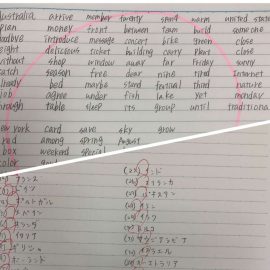 australia arrive member twenty sport warm united state
plan money front between team build someone
goodbye introduce message concert bike green close
eight delicious ticket building carry plant close
without shop window away far Friday sunny
watch season free dear nine third Internet
already bed maybe stand festival third nature
job agree under fish lake yet monday
through table sleep its group until traditional
new york card save sky grow
red among spring August
box weekend special
color
フランス
ポルトガル
スペイン
オランダ
イタリア
ギリシャ
(25) インド
(26) スリランカ
(27)
(28) イラン
(29) イラク
(30) トルコ
(31) サウジアラビア
(32) イスラエル
(33) オーストラリア